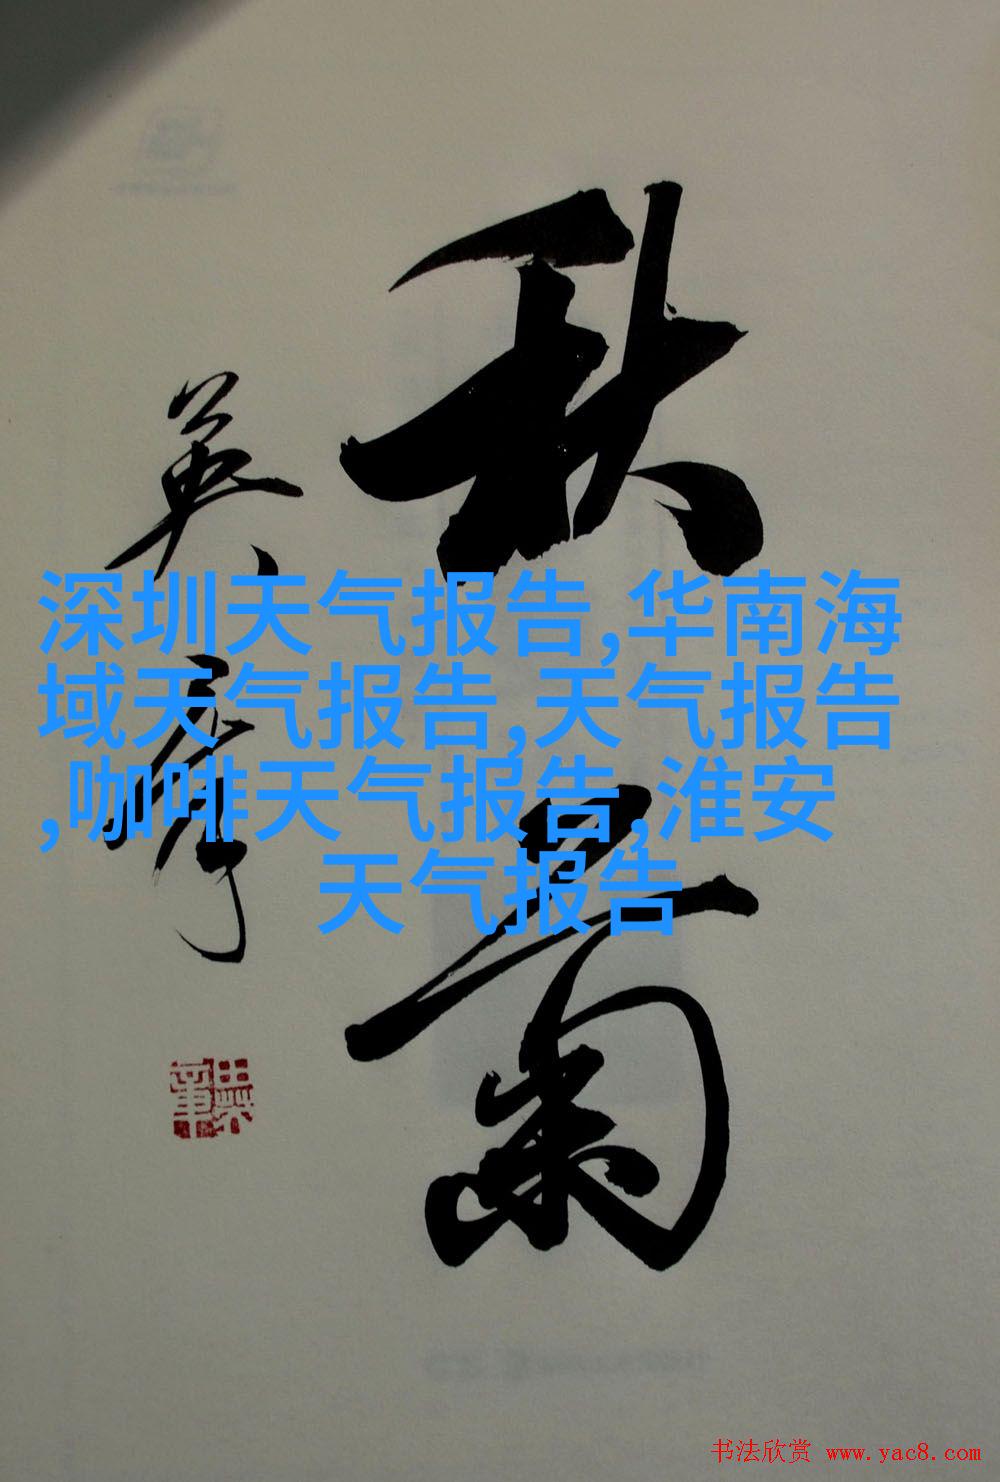 秋菊
英彦
深圳天气报告,华南海
域天气报告,天气报告
,咖啡天气报告,淮安
天气报告
书法欣赏 www.yac8.com